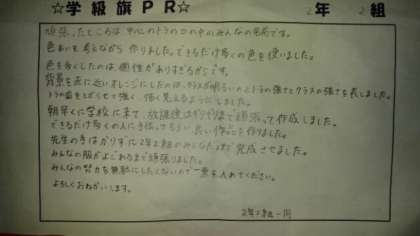 ☆学級旗PR☆ 2年 2組
頑張ったところは中心のトラの中のみんなの名前です。
色あいを考えながら作りました。できるだけ多くの色を使いました。
色を多くしたのは、個性がありすぎるからです。
背景を赤に近いオレンジにしたのは、クラスが明るいのとトラの強さとクラスの強さを表しました。
トラの歯をとがらせて強く、怖く見えるようにしました。
朝早くに学校に来て、放課後はギリギリまで頑張って作成しました。
できるだけ多くの人に手伝ってもらい良い作品を作りました。
先生の手はかりずに2年2組のみんなで完成させました。
みんなの服がよごれるまで頑張りました。
みんなの努力を無駄にしたくないので一票を入れてください。
よろしくおねがいします。
2年2組一同